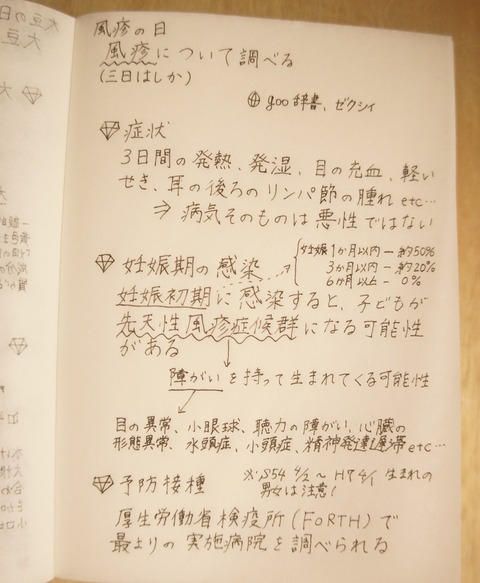 風疹の日
風疹について調べる
(三日はしか)
㊫ goo辞書、ゼクシィ
症状
3日間の発熱、発湿、目の充血、軽い
せき、耳の後ろのリンパ節の腫れ etc…
⇒ 病気そのものは悪性ではない
妊娠期の感染
妊娠1か月以内 - 約50%
3か月以内 - 約20%
6か月以上 - 0%
妊娠初期に感染すると、子どもが
先天性風疹症候群になる可能性
がある
障がいを持って生まれてくる可能性
目の異常、小眼球、聴力の障がい、心臓の
形態異常、水頭症、小頭症、精神発達遅滞 etc…
予防接種
※S54 4/2~H7 4/1 生まれの
男女は注意!
厚生労働省検疫所(FORTH)で
最よりの実施病院を調べられる
大豆の日
大豆